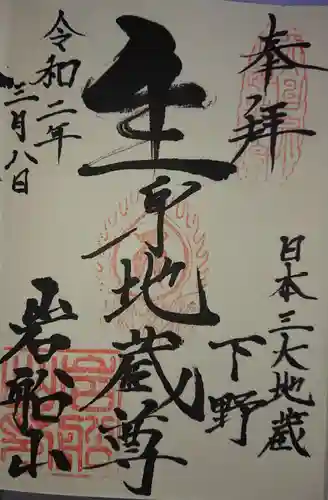 奉拝
日本三大地蔵
下野
生身地蔵尊
岩船山
令和二年
三月八日